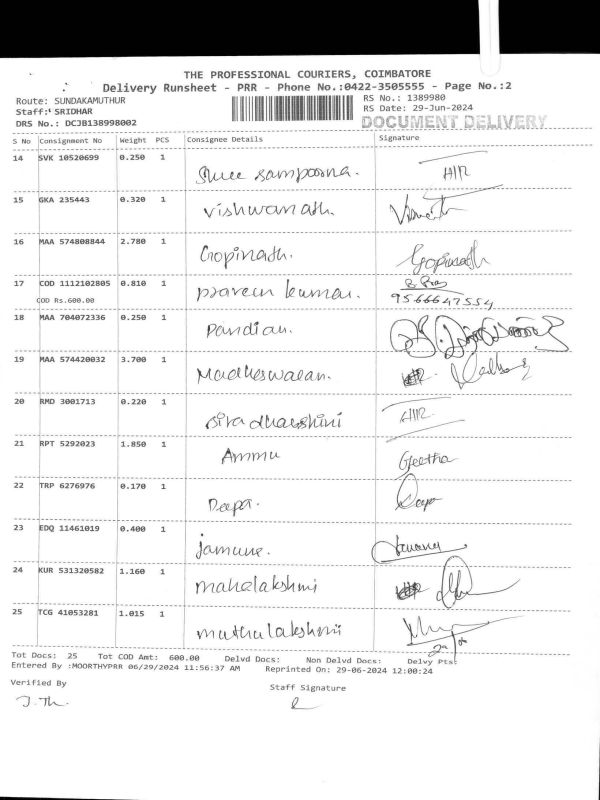 THE PROFESSIONAL COURIERS, COIMBATORE
Delivery Runsheet - PRR - Phone No.:0422-3505555 - Page No.:2
Route: SUNDAKAMUTHUR RS No.: 1389980
Staff: SRIDHAR RS Date: 29-Jun-2024
DRS No.: DCJB138998002 DOCUMENT DELIVERY
S No Consignment No Weight PCS Consignee Details Signature
14 SVK 10520699 0.250 1 Shree sampoorna.
15 GKA 235443 0.320 1 Vishwanath.
16 MAA 574808844 2.780 1 Gopinath. Gopinath
17 COD 1112102805 0.810 1 praveen kumar.
COD Rs.600.00 9566647554
18 MAA 704072336 0.250 1 Pandian.
19 MAA 574420032 3.700 1 Madheswaran.
20 RMD 3001713 0.220 1 Siva dharshini
21 RPT 5292023 1.850 1 Ammu Geetha
22 TRP 6276976 0.170 1 Deepa. Deepa
23 EDQ 11461019 0.400 1 jamune.
24 KUR 531320582 1.160 1 mahalakshmi
25 TCG 41053281 1.015 1 muthulakshmi
Tot Docs: 25 Tot COD Amt: 600.00 Delvd Docs: Non Delvd Docs: Delvy Pts:
Entered By :MOORTHYPRR 06/29/2024 11:56:37 AM Reprinted On: 29-06-2024 12:00:24
Verified By Staff Signature